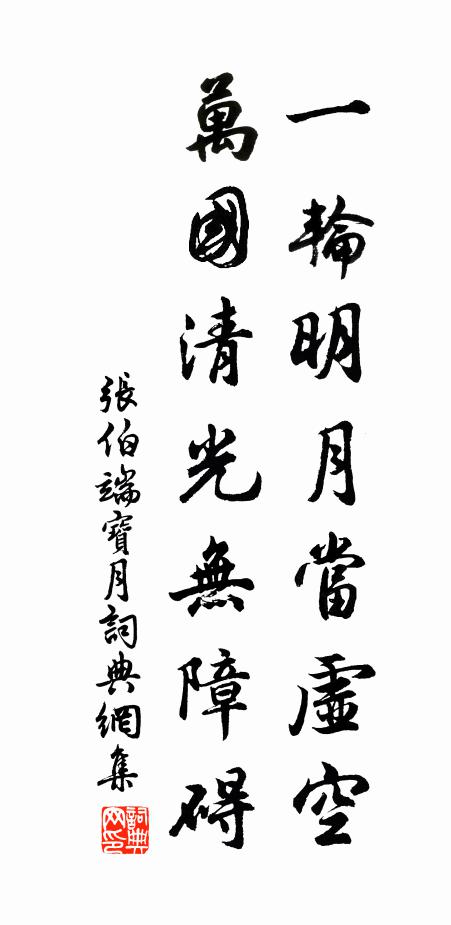 一輪明月當虛空
萬國清光無障碍
張伯端寶月詞典網集
詞典网印